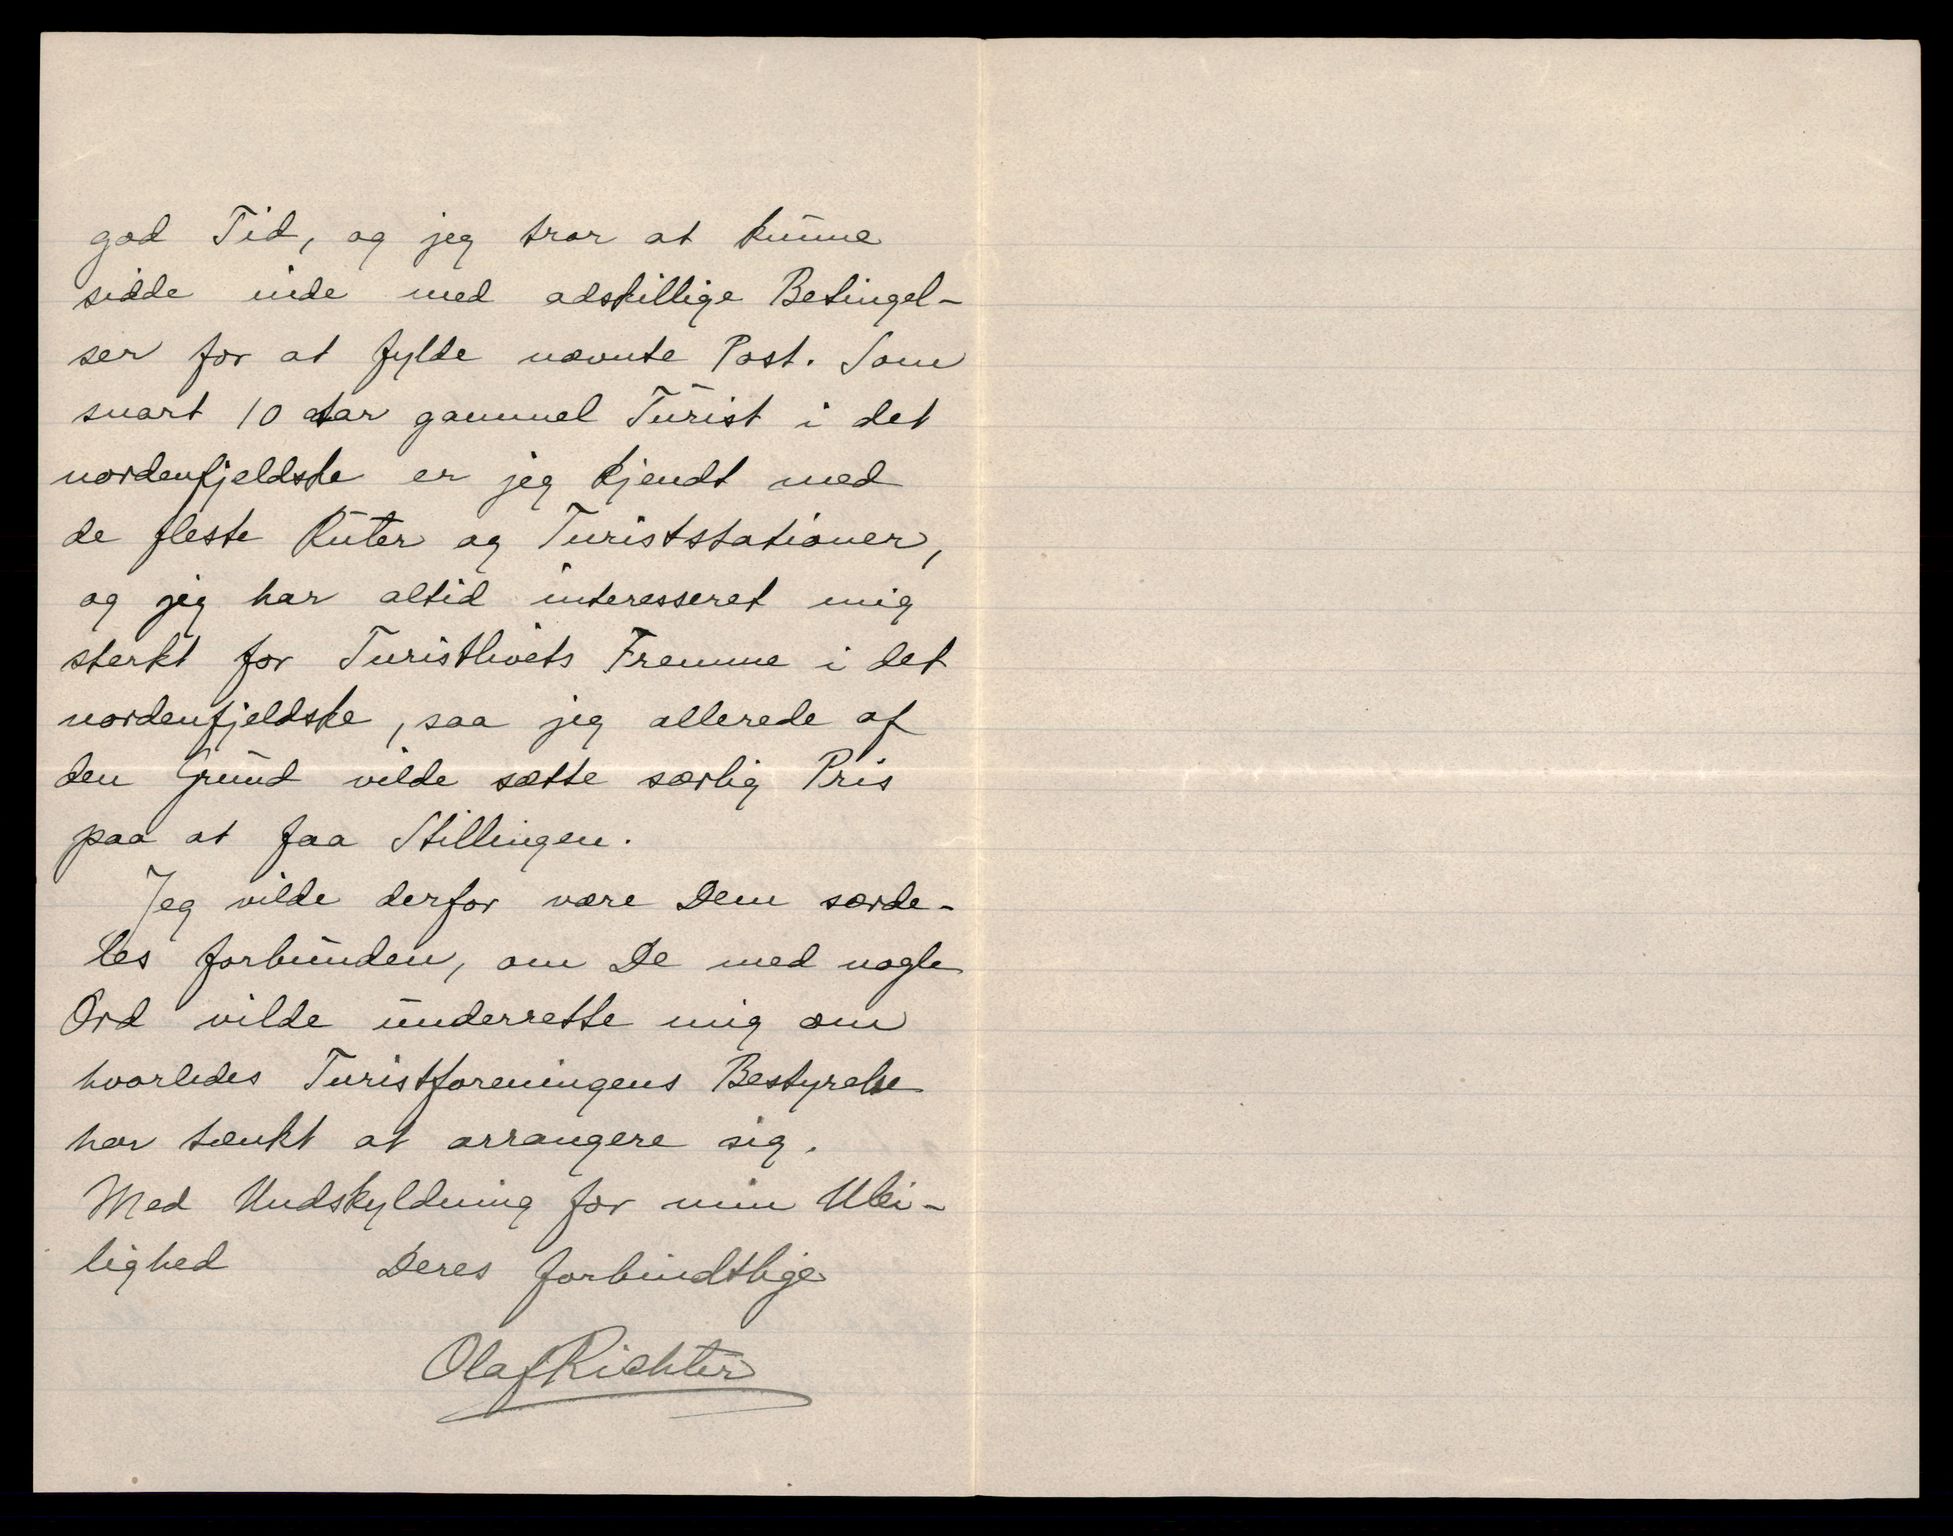 god Tid, og jeg tror at kunne
sidde inde med adskillige Betingel-
ser for at fylde nævnte Post. Som
snart 10 aar gammel Turist i det
nordenfjeldske er jeg kjendt med
de fleste Ruter og Turiststationer,
og jeg har altid interesseret mig
sterkt for Turistlivets Fremme i det
nordenfjeldske, saa jeg allerede af
den Grund vilde sætte særlig Pris
paa at faa Stillingen.
Jeg vilde derfor være Dem særde-
les forbunden, om De med nogle
Ord vilde underrette mig om
hvorledes Turistforeningens Bestyrelse
har tænkt at arrangere sig.
Med Undskyldning for min Ulei-
lighed Deres forbindtlige
Olaf Richter